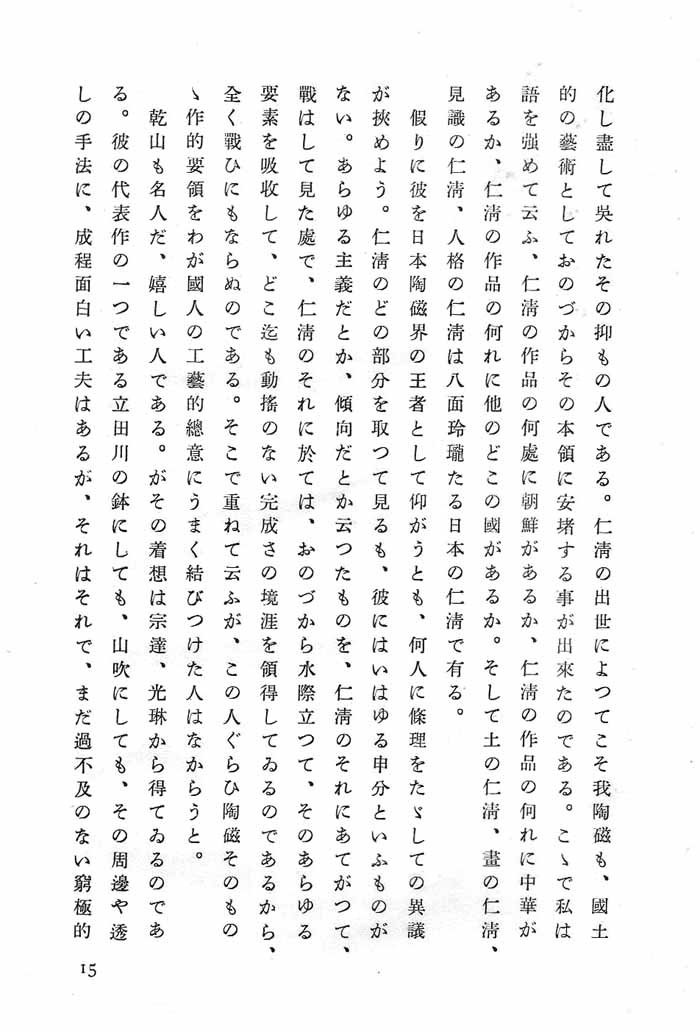 化し盡して吳れたその抑もの人である。仁淸の出世によつてこそ我陶磁も、國土
的の藝術としておのづからその本領に安堵する事が出來たのである。こゝで私は
語を强めて云ふ、仁淸の作品の何處に朝鮮があるか、仁淸の作品の何れに中華が
あるか、仁淸の作品の何れに他のどこの國があるか。そして土の仁淸、畫の仁淸、
見識の仁淸、人格の仁淸は八面玲瓏たる日本の仁淸で有る。
假りに彼を日本陶磁界の王者として仰がうとも、何人に條理をたゞしての異議
が挾めよう。仁淸のどの部分を取つて見るも、彼にはいはゆる申分といふものが
ない。あらゆる主義だとか、傾向だとか云つたものを、仁淸のそれにあてがつて、
戰はして見た處で、仁淸のそれに於ては、おのづから水際立つて、そのあらゆる
要素を吸收して、どこ迄も動搖のない完成さの境涯を領得してゐるのであるから、
全く戰ひにもならぬのである。そこで重ねて云ふが、この人ぐらひ陶磁そのもの
ゝ作的要領をわが國人の工藝的總意にうまく結びつけた人はなからうと。
乾山も名人だ、嬉しい人である。がその着想は宗達、光琳から得てゐるのであ
る。彼の代表作の一つである立田川の鉢にしても、山吹にしても、その周邊や透
しの手法に、成程面白い工夫はあるが、それはそれで、まだ過不及のない窮極的
15